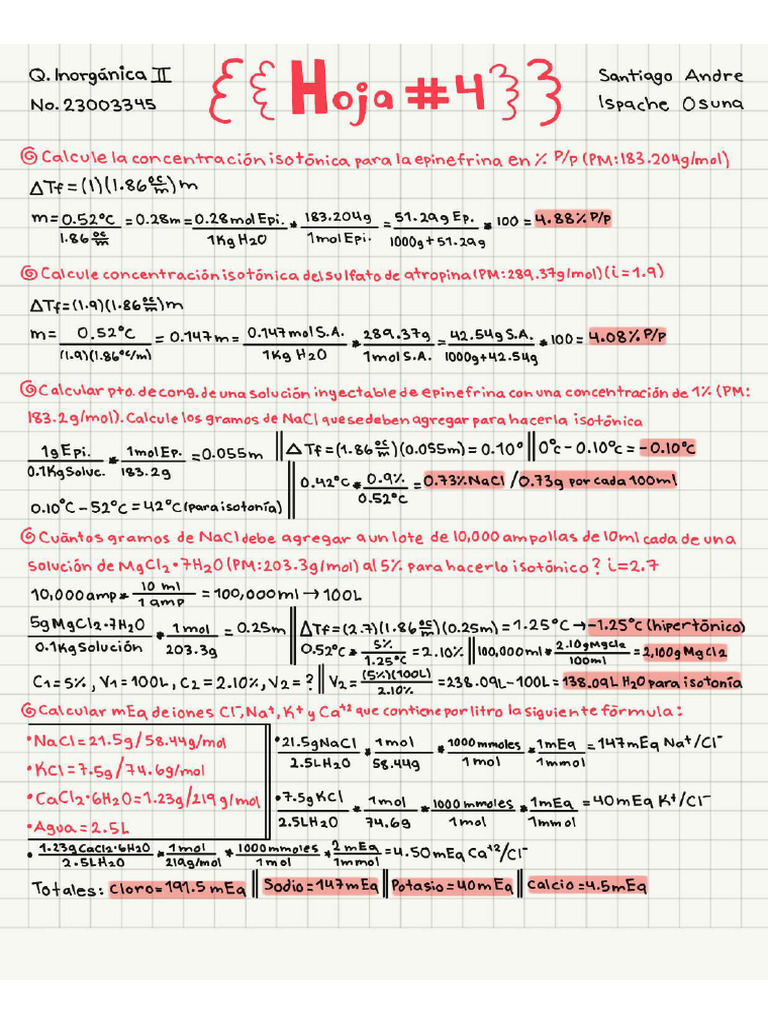 Q. Inorgánica II
No. 23003345
{{Hoja #4}}
Santiago Andre
Ispache Osuna
Calcule la concentración isotónica para la epinefrina en % P/p (PM:183.204g/mol)
ΔTf = (1)(1.86 °C/m)m
m = 0.52°C / 1.86 °C/m = 0.28m = 0.28 mol Epi. / 1Kg H2O * 183.204g / 1mol Epi. = 51.29g Ep. / 1000g + 51.29g * 100 = 4.88% P/p
Calcule concentración isotónica del sulfato de atropina (PM:289.37g/mol) (i=1.9)
ΔTf = (1.9)(1.86 °C/m)m
m = 0.52°C / (1.9)(1.86°C/m) = 0.147m = 0.147 mol S.A. / 1Kg H2O * 289.37g / 1mol S.A. = 42.54g S.A. / 1000g+42.54g * 100 = 4.08% P/p
Calcular pto. de cong. de una solución inyectable de epinefrina con una concentración de 1% (PM:
183.2g/mol). Calcule los gramos de NaCl que se deben agregar para hacerla isotónica
1g Epi. / 0.1Kg Soluc. * 1mol Ep. / 183.2g = 0.055m || ΔTf = (1.86 °C/m)(0.055m) = 0.10° || 0°C - 0.10°C = -0.10°C
0.10°C - 52°C = 42°C (para isotonía) || 0.42°C * 0.9% / 0.52°C = 0.73% NaCl / 0.73g por cada 100ml
Cuántos gramos de NaCl debe agregar a un lote de 10,000 ampollas de 10ml cada de una
solución de MgCl2·7H2O (PM:203.3g/mol) al 5% para hacerlo isotónico? i=2.7
10,000 amp * 10 ml / 1 amp = 100,000 ml → 100L
5g MgCl2·7H2O / 0.1Kg Solución * 1mol / 203.3g = 0.25m || ΔTf = (2.7)(1.86 °C/m)(0.25m) = 1.25°C → -1.25°C (hipertónico)
0.52°C * 5% / 1.25°C = 2.10% || 100,000ml * 2.10g MgCl2 / 100ml = 2,100g MgCl2
C1 = 5%, V1 = 100L, C2 = 2.10%, V2 = ? || V2 = (5%)(100L) / 2.10% = 238.09L - 100L = 138.09L H2O para isotonía
Calcular mEq de iones Cl⁻, Na⁺, K⁺ y Ca⁺² que contiene por litro la siguiente fórmula:
• NaCl = 21.5g / 58.44g/mol
• KCl = 7.5g / 74.6g/mol
• CaCl2·6H2O = 1.23g / 219 g/mol
• Agua = 2.5L
• 21.5g NaCl / 2.5L H2O * 1mol / 58.44g * 1000 mmoles / 1mol * 1mEq / 1mmol = 147mEq Na⁺/Cl⁻
• 7.5g KCl / 2.5L H2O * 1mol / 74.6g * 1000 mmoles / 1mol * 1mEq / 1mmol = 40mEq K⁺/Cl⁻
• 1.23g CaCl2·6H2O / 2.5L H2O * 1mol / 219g/mol * 1000 mmoles / 1mol * 2mEq / 1mmol = 4.50mEq Ca⁺²/Cl⁻
Totales: Cloro = 191.5 mEq || Sodio = 147mEq || Potasio = 40mEq || Calcio = 4.5mEq